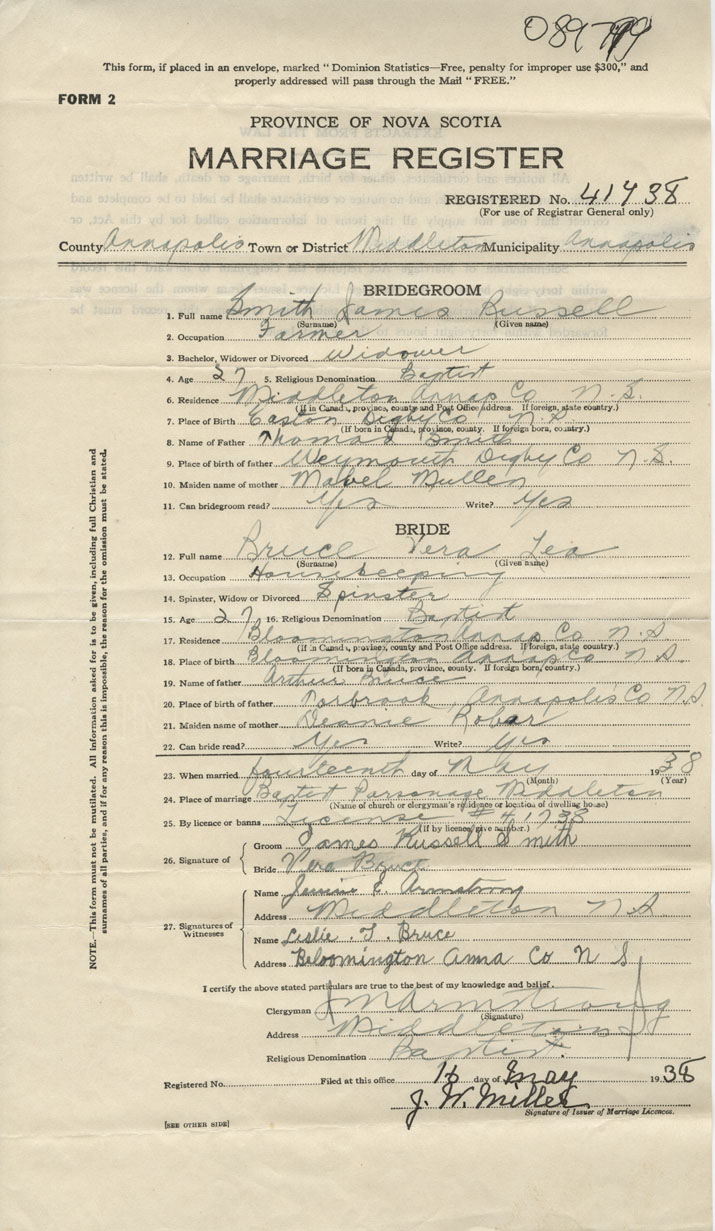 This form, if placed in an envelope, marked "Dominion Statistics—Free, penalty for improper use $300," and
properly addressed will pass through the Mail "FREE."
FORM 2
PROVINCE OF NOVA SCOTIA
MARRIAGE REGISTER
REGISTERED No. 41738
(For use of Registrar General only)
County Annapolis Town or District Middleton Municipality Annapolis
BRIDEGROOM
1. Full name Smith James Russell
(Surname) (Given name)
2. Occupation Farmer
3. Bachelor, Widower or Divorced Widower
4. Age 27 5. Religious Denomination Baptist
6. Residence Middleton Annap Co N.S.
(If in Canada, province, county and Post Office address. If foreign, state country.)
7. Place of Birth Easton Digby Co N.S
(If born in Canada, province, county. If foreign born, country.)
8. Name of Father Thomas Smith
9. Place of birth of father Weymouth Digby Co N.S.
10. Maiden name of mother Mabel Mullen
11. Can bridegroom read? Yes Write? Yes
BRIDE
12. Full name Bruce Vera Lea
(Surname) (Given name)
13. Occupation Housekeeping
14. Spinster, Widow or Divorced Spinster
15. Age 27 16. Religious Denomination Baptist
17. Residence Bloomington Annap Co N.S
(If in Canada, province, county and Post Office address. If foreign, state country.)
18. Place of birth Bloomington Annap Co N.S.
(If born in Canada, province, county. If foreign born, country.)
19. Name of father Arthur Bruce
20. Place of birth of father Torbrook, Annapolis Co N.S.
21. Maiden name of mother Robar
22. Can bride read? Yes Write? Yes
23. When married fourteenth day of May 1938
(Month) (Year)
24. Place of marriage Baptist Parsonage Middleton
(Name of church or clergyman's residence or location of dwelling house)
25. By licence or banns License # 41738
(If by licence give number.)
26. Signature of
Groom James Russell Smith
Bride Vera Bruce
27. Signatures of Witnesses
Name Jennie E. Armstrong
Address Middleton N.S.
Name Leslie . T . Bruce
Address Bloomington Anna Co N S
I certify the above stated particulars are true to the best of my knowledge and belief.
Clergyman Armstrong
(Signature)
Address Middleton
Religious Denomination Baptist.
Registered No. Filed at this office 16 day of May 1938
J. W. Miller
Signature of Issuer of Marriage Licences.
[SEE OTHER SIDE]
NOTE.—This form must not be mutilated. All information asked for is to be given, including full Christian and
surnames of all parties, and if for any reason this is impossible, the reason for the omission must be stated.